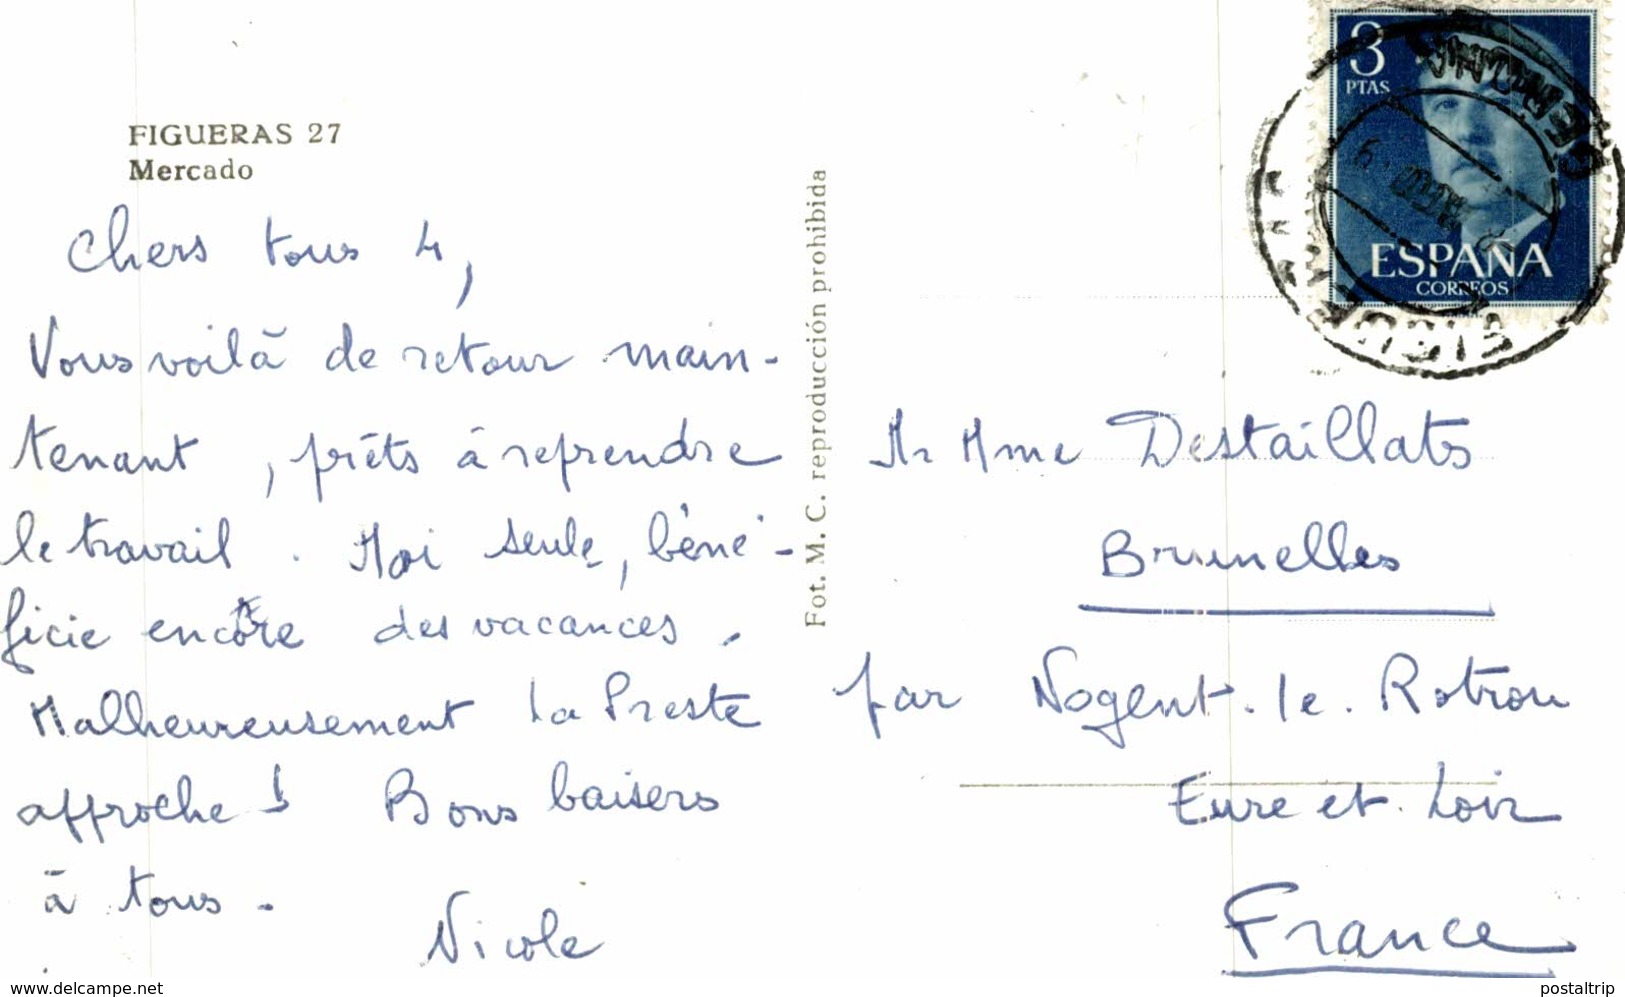 FIGUERAS 27
Mercado
Chers tous 4,
Vous voilà de retour main-
tenant, prêts à reprendre
le travail. Moi seule, béné-
ficie encore des vacances.
Malheureusement la Preste
approche! Bons baisers
à tous.
Nicole
Fot. M. C. reproducción prohibida
3
PTAS
ESPAÑA
CORREOS
GERONA
FIGUERAS
Mr Mme Destaillats
Brunelles
par Nogent-le-Rotrou
Eure et Loir
France
www.delcampe.net
postaltrip